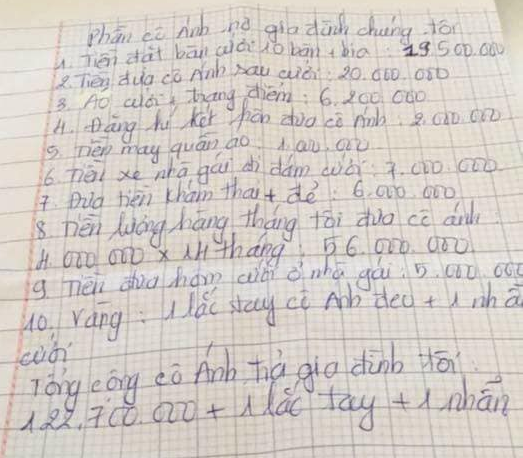 Phần cô Ánh nợ gia đình chúng tôi
1. Tiền đặt bàn cưới 10 bàn + bia : 19 500.000
2. Tiền đưa cô Ánh sau cưới : 20.000.000
3. Áo cưới + trang điểm : 6.200.000
4. Đăng kí kết hôn đưa cô Ánh : 2.000.000
5. Tiền may quần áo 1.000.000
6. Tiền xe nhà gái đi đám cưới : 7.000.000
7. Đưa tiền khám thai + đẻ : 6.000.000
8 Tiền lương hàng tháng tôi đưa cô ánh :
4.000 000 x 14 tháng : 56.000.000
9. Tiền đưa hôm cưới ở nhà gái : 5.000.000
10. Vàng : 1 lắc tay cô Ánh đeo + 1 nhẫ
cưới
Tổng cộng cô Ánh trả gia đình tôi :
122.700.000 + 1 lắc tay + 1 nhẫn